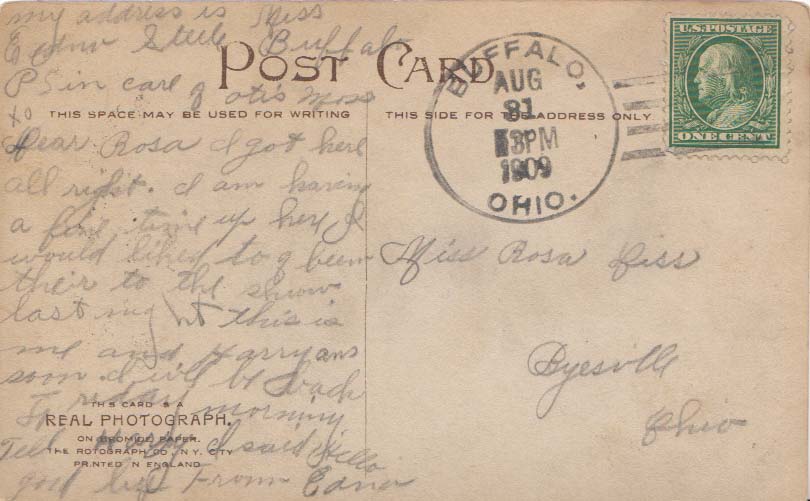 my address is Miss
Edna Steele Buffalo
PS in care of Otis Moss
to
POST CARD
THIS SPACE MAY BE USED FOR WRITING
THIS SIDE FOR THE ADDRESS ONLY
BUFFALO,
AUG
31
3PM
1909
OHIO.
U.S. POSTAGE
ONE CENT
Dear Rosa I got here
all right. I am having
a fine time up here I
would liked to of been
their to the show
last night this is
me and Harry ans
soon I will be back
Friday morning
Tell I said Hello
good by From Edna
Miss Rosa
Byesville
Ohio
THIS CARD IS A
REAL PHOTOGRAPH.
ON BROMIDE PAPER.
THE ROTOGRAPH CO., N.Y. CITY
PRINTED IN ENGLAND